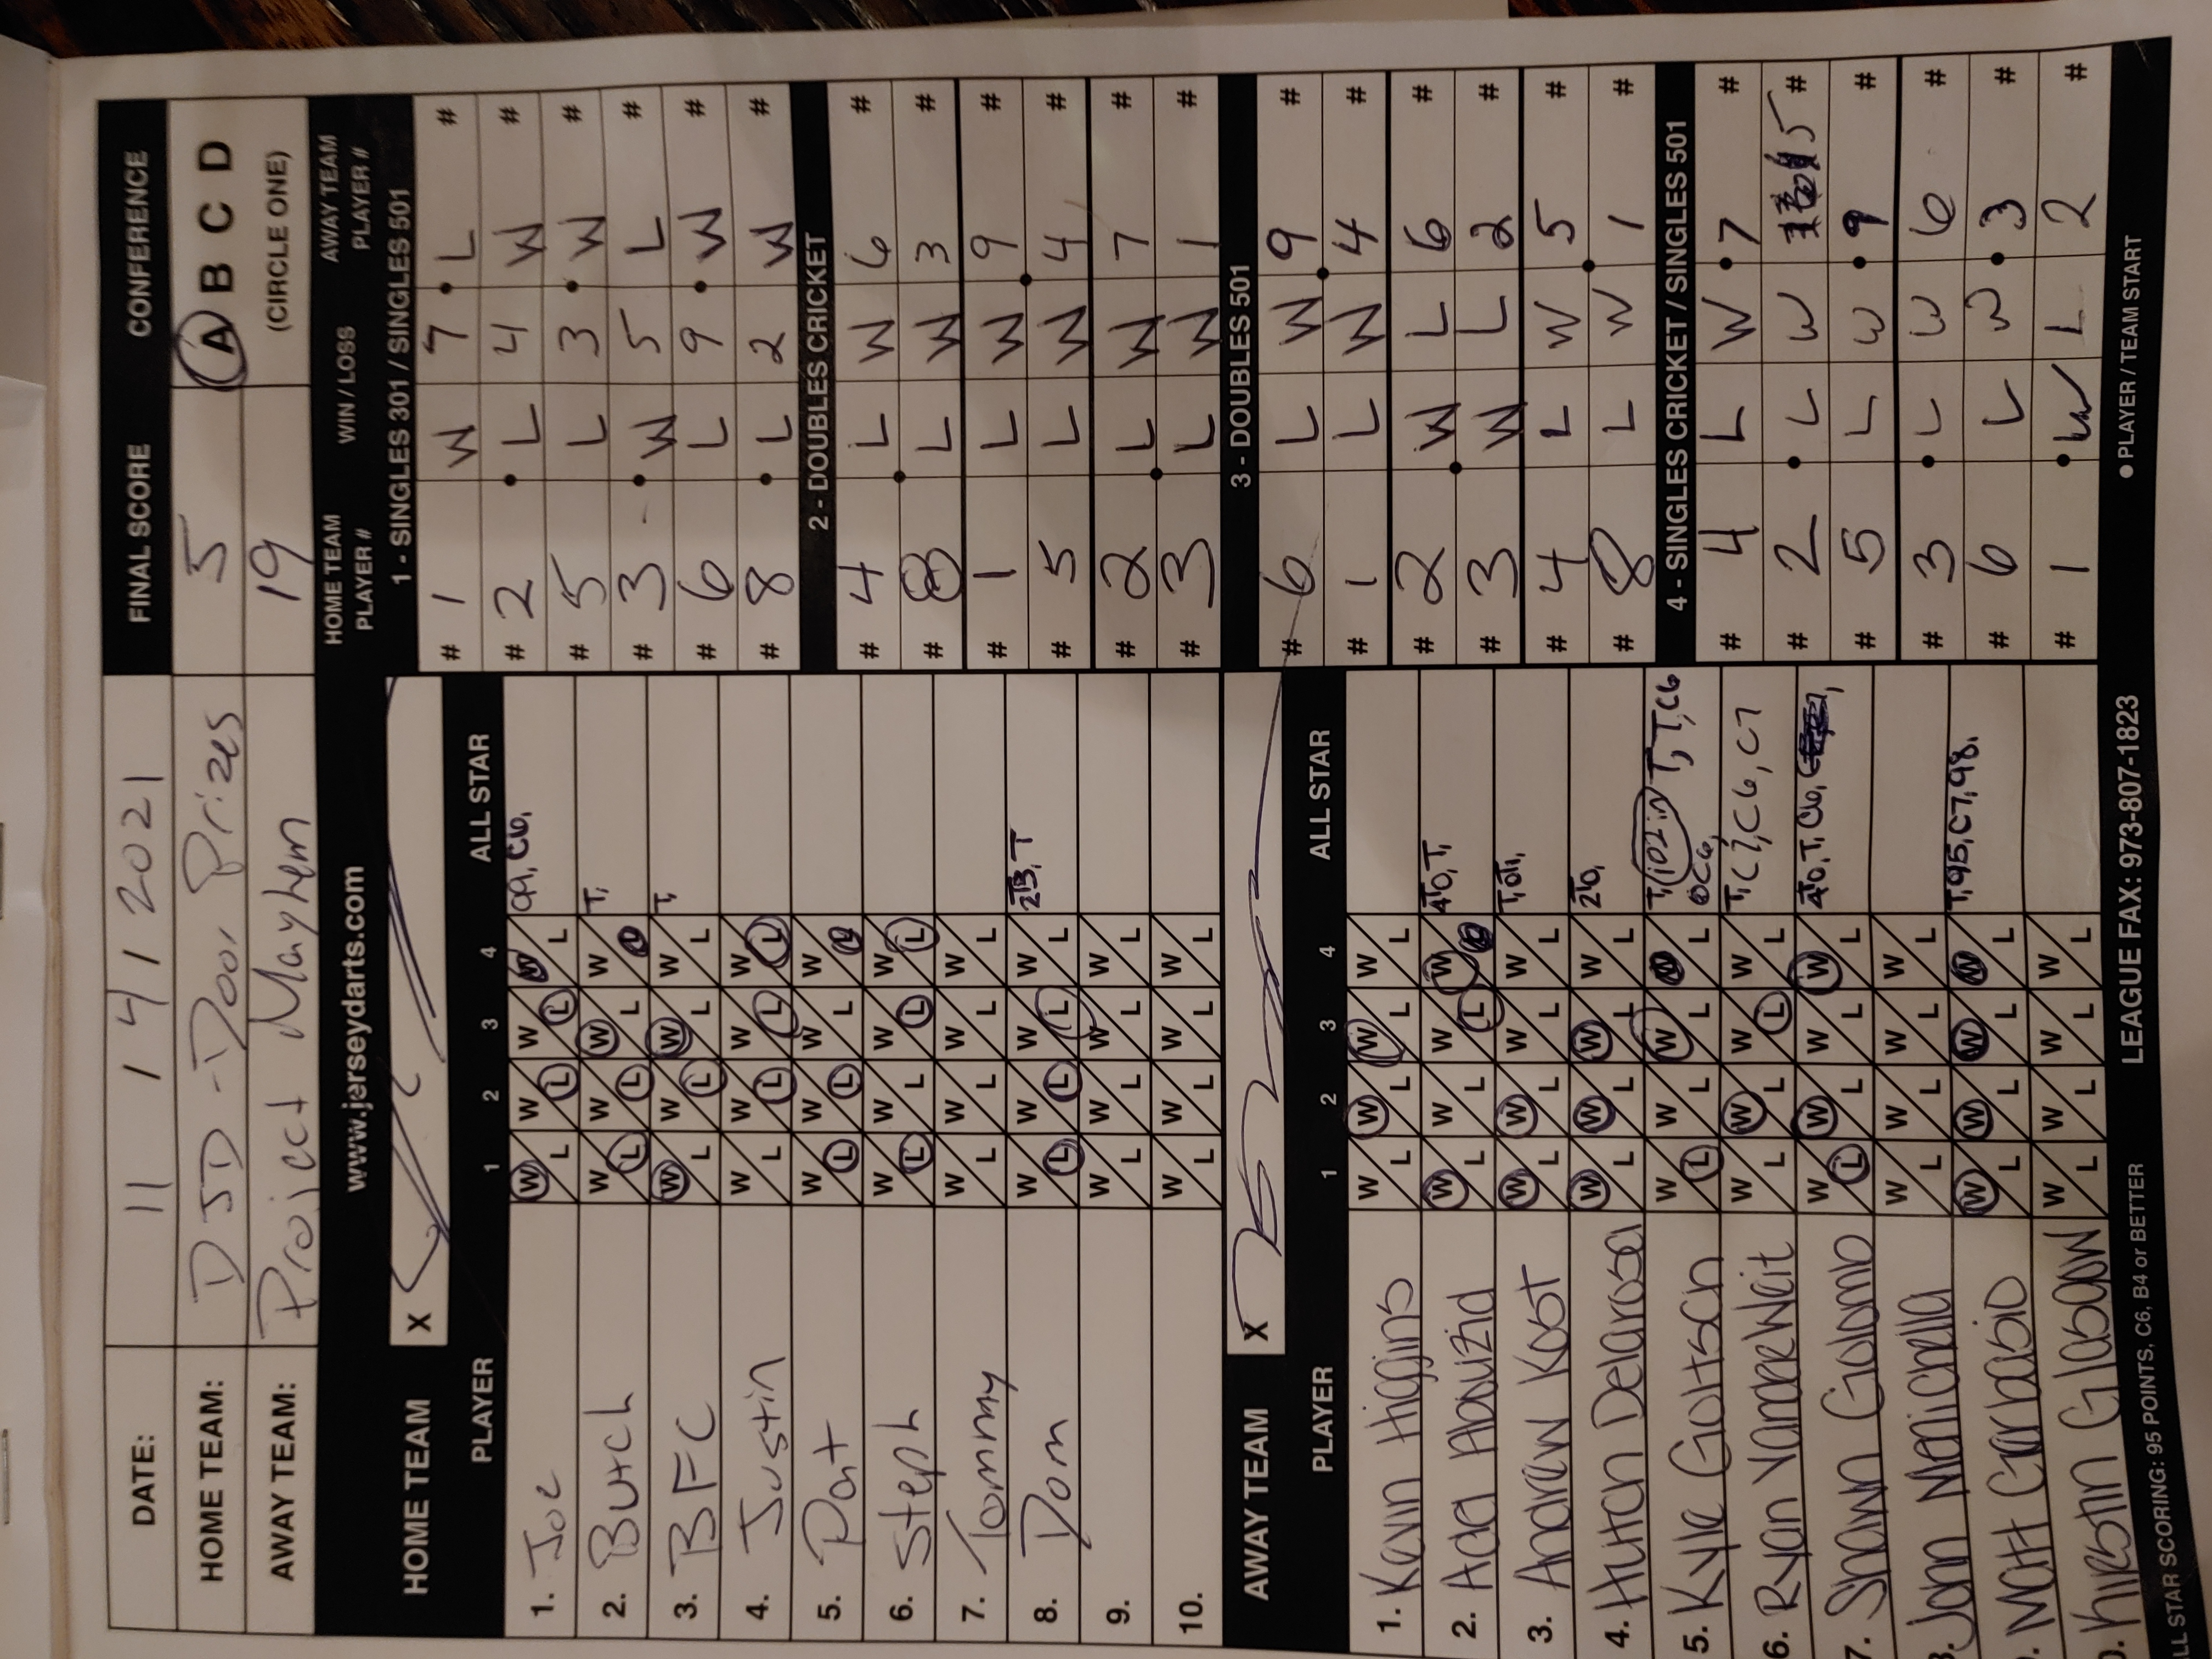 DATE: 11 / 4 / 2021 FINAL SCORE CONFERENCE
HOME TEAM: DSD - Door Prizes 5 A B C D
AWAY TEAM: Project Mayhem 19 (CIRCLE ONE)
www.jerseydarts.com
HOME TEAM X
PLAYER 1 2 3 4 ALL STAR
1. Joe W L W L W L W L 99, C6,
2. Butch W L W L W L W L T,
3. BFC W L W L W L W L T,
4. Justin W L W L W L W L
5. Pat W L W L W L W L
6. Steph W L W L W L W L
7. Tommy W L W L W L W L
8. Dom W L W L W L W L 2B, T
9. W L W L W L W L
10. W L W L W L W L
AWAY TEAM X
PLAYER 1 2 3 4 ALL STAR
1. Kevin Higgins W L W L W L W L
2. Add Abouzid W L W L W L W L 4T0, T,
3. Andrew Kost W L W L W L W L T,
4. Hutch Delarosa W L W L W L W L 2T0,
5. Kyle Goitsch W L W L W L W L T, 102in T, T, C6
6C6,
6. Ryan VanderWeit W L W L W L W L T, C7, C6, C7
7. Shawn Golomb W L W L W L W L 4T0, T, C6,
8. John Menichella W L W L W L W L
9. Matt Garbasio W L W L W L W L T, 95, C7, 98,
10. Kirstin Glasgow W L W L W L W L
ALL STAR SCORING: 95 POINTS, C6, B4 or BETTER LEAGUE FAX: 973-807-1823
HOME TEAM PLAYER # WIN / LOSS AWAY TEAM PLAYER #
1 - SINGLES 301 / SINGLES 501
# 1 W 7 L #
# 2 L 4 W #
# 5 L 3 W #
# 3 W 5 L #
# 6 L 9 W #
# 8 L 2 W #
2 - DOUBLES CRICKET
# 4 L W 6 #
# 8 L W 3 #
# 1 L W 9 #
# 5 L W 4 #
# 2 L W 7 #
# 3 L W 1 #
3 - DOUBLES 501
# 6 L W 9 #
# 1 L W 4 #
# 2 W L 6 #
# 3 W L 2 #
# 4 L W 5 #
# 8 L W 1 #
4 - SINGLES CRICKET / SINGLES 501
# 4 L W 7 #
# 2 L W 5 #
# 5 L W 9 #
# 3 L W 6 #
# 6 L W 3 #
# 1 W L 2 #
● PLAYER / TEAM START